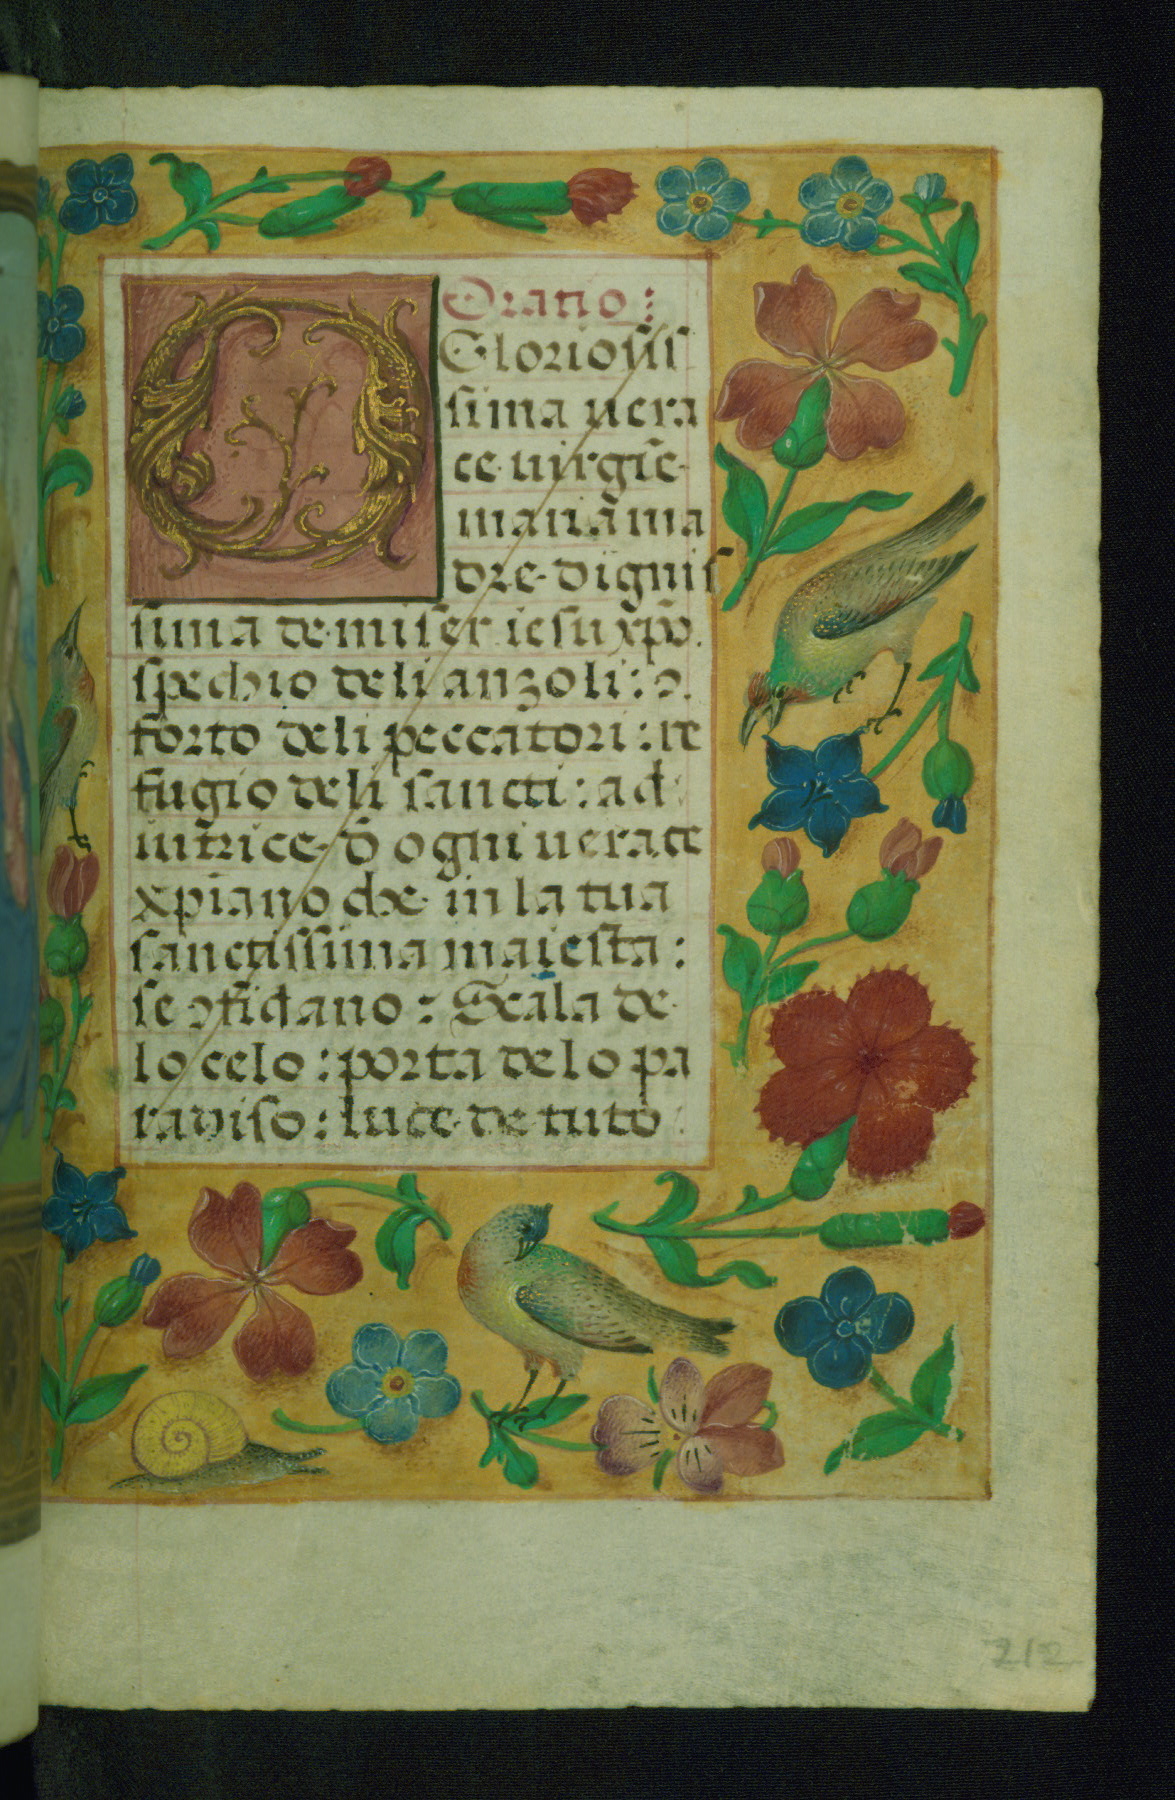 Oratio:
O Gloriosis
sima uera
ce uirgīe
maria ma
dre dignis
sima de miser iesu xp̄o.
spechio de li anzoli: ɔ
forto de li peccatori: re
fugio de li sancti: ad
iutrice d̄ ogni uerace
xpiano che in la tua
sanctissima maiesta:
se ɔfidano: Scala de
lo celo: porta de lo pa
radiso: luce de tuto
212